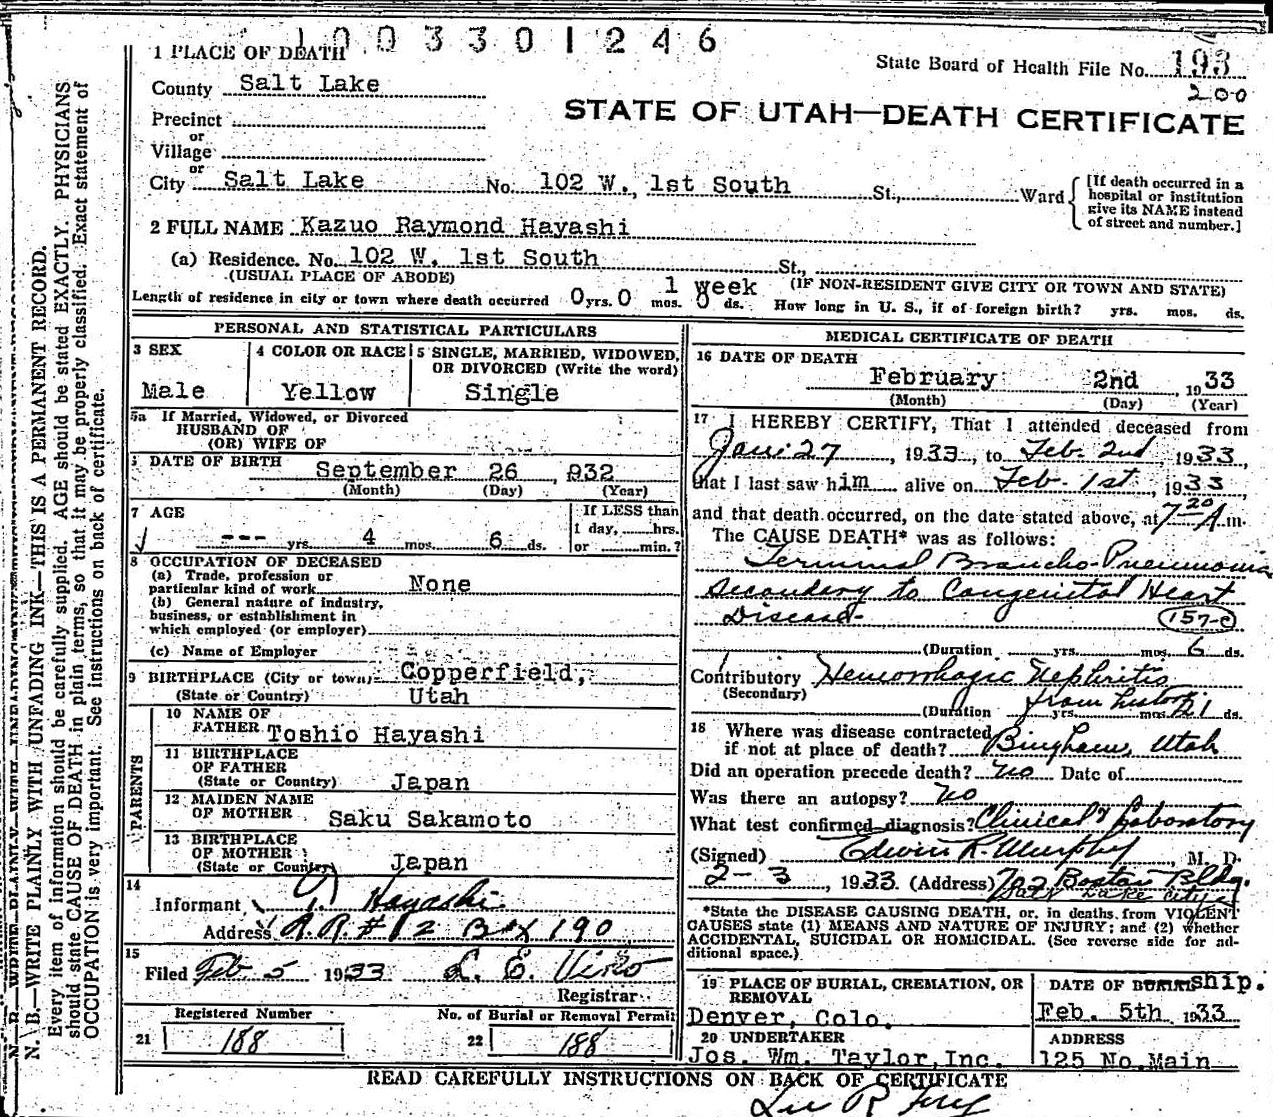 1003301246
1 PLACE OF DEATH
State Board of Health File No. 193
200
County Salt Lake
STATE OF UTAH—DEATH CERTIFICATE
Precinct
or
Village
or
City Salt Lake No. 102 W., 1st South St., Ward
[If death occurred in a
hospital or institution
give its NAME instead
of street and number.]
2 FULL NAME Kazuo Raymond Hayashi
(a) Residence. No. 102 W. 1st South St.,
(USUAL PLACE OF ABODE) (IF NON-RESIDENT GIVE CITY OR TOWN AND STATE)
1 week
Length of residence in city or town where death occurred 0 yrs. 0 mos. 0 ds. How long in U. S., if of foreign birth? yrs. mos. ds.
PERSONAL AND STATISTICAL PARTICULARS
3 SEX
Male
4 COLOR OR RACE
Yellow
5 SINGLE, MARRIED, WIDOWED,
OR DIVORCED (Write the word)
Single
5a If Married, Widowed, or Divorced
HUSBAND OF
(OR) WIFE OF
DATE OF BIRTH
September 26, 932
(Month) (Day) (Year)
7 AGE
--- yrs. 4 mos. 6 ds.
If LESS than
1 day, hrs.
or min.?
8 OCCUPATION OF DECEASED
(a) Trade, profession or
particular kind of work None
(b) General nature of industry,
business, or establishment in
which employed (or employer)
(c) Name of Employer
9 BIRTHPLACE (City or town) Copperfield,
(State or Country) Utah
PARENTS
10 NAME OF
FATHER Toshio Hayashi
11 BIRTHPLACE
OF FATHER
(State or Country) Japan
12 MAIDEN NAME
OF MOTHER Saku Sakamoto
13 BIRTHPLACE
OF MOTHER
(State or Country) Japan
14
Informant Hayashi
Address R.R. #12 Box 190
15
Filed Feb 5 1933 L. E. Viko
Registrar
Registered Number
21 188
No. of Burial or Removal Permit
22 188
MEDICAL CERTIFICATE OF DEATH
16 DATE OF DEATH
February 2nd 1933
(Month) (Day) (Year)
17 I HEREBY CERTIFY, That I attended deceased from
Jan. 27, 1933, to Feb. 2nd, 1933,
that I last saw him alive on Feb. 1st, 1933
and that death occurred, on the date stated above, at 7 20 A m.
The CAUSE DEATH* was as follows:
Terminal Broncho-Pneumonia
secondary to Congenital Heart
Disease-
157-c
(Duration yrs. mos. 6 ds.
Contributory Hemorrhagic Nephritis
(Secondary) from history
(Duration yrs. mos. 21 ds.
18 Where was disease contracted
if not at place of death? Bingham, Utah
Did an operation precede death? no Date of
Was there an autopsy? no
What test confirmed diagnosis? Clinical & Laboratory
(Signed) Edwin R. Murphy, M. D.
2-3, 1933. (Address) 702 Boston Bldg.
Salt Lake City
*State the DISEASE CAUSING DEATH, or, in deaths from VIOLENT
CAUSES state (1) MEANS AND NATURE OF INJURY; and (2) whether
ACCIDENTAL, SUICIDAL OR HOMICIDAL. (See reverse side for ad-
ditional space.)
19 PLACE OF BURIAL, CREMATION, OR
REMOVAL
Denver, Colo.
DATE OF BURIAL ship.
Feb. 5th 1933
20 UNDERTAKER
Jos. Wm. Taylor, Inc.
ADDRESS
125 No. Main
READ CAREFULLY INSTRUCTIONS ON BACK OF CERTIFICATE
N. B.—WRITE PLAINLY WITH UNFADING INK—THIS IS A PERMANENT RECORD.
Every item of information should be carefully supplied. AGE should be stated EXACTLY. PHYSICIANS
should state CAUSE OF DEATH in plain terms, so that it may be properly classified. Exact statement of
OCCUPATION is very important. See instructions on back of certificate.